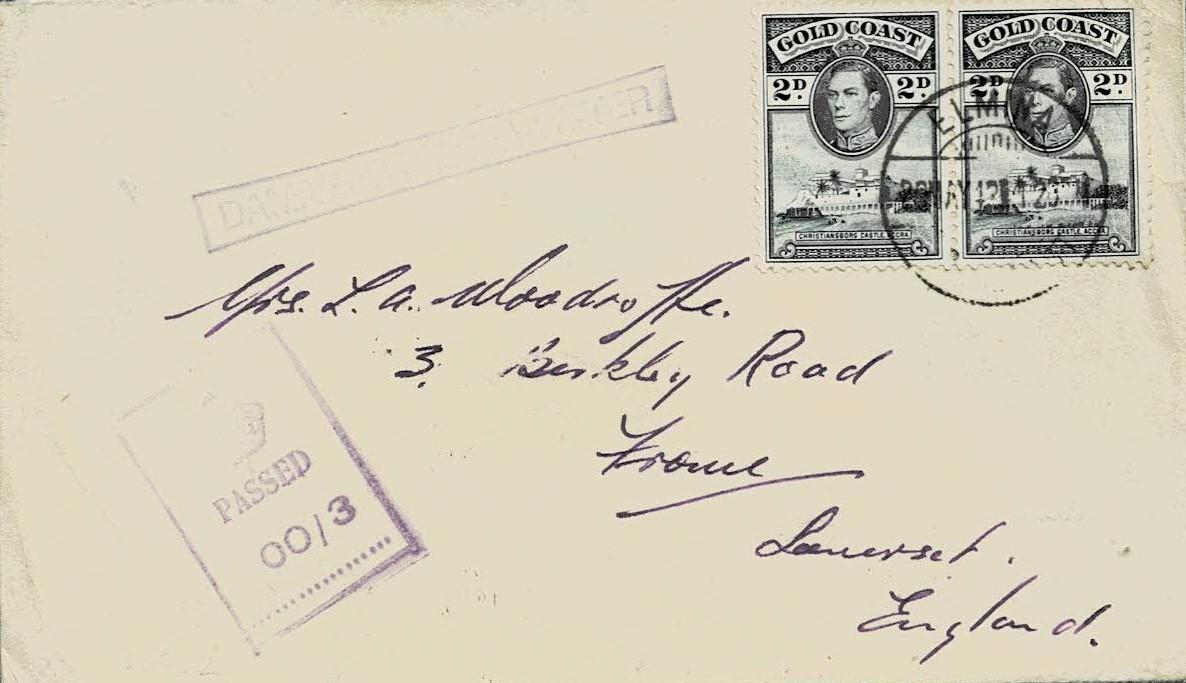 GOLD COAST
2D. 2D.
CHRISTIANSBORG CASTLE, ACCRA
GOLD COAST
2D. 2D.
CHRISTIANSBORG CASTLE, ACCRA
ELMINA
DAM
Mrs. L. A. Woodroffe.
3, Berkley Road
Frome
Somerset.
England.
PASSED
00/3